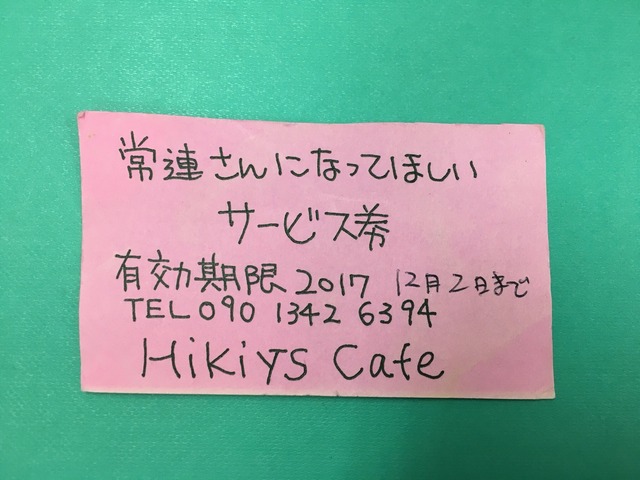 常連さんになってほしい
サービス券
有効期限 2017 12月2日まで
TEL 090 1342 6394
HiKiYS Cafe